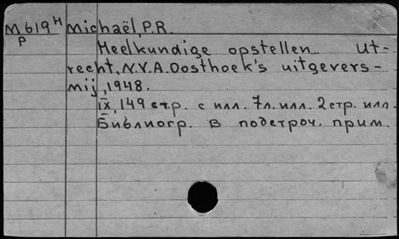 M619ᴴ Michaël, P.R.
p
Heelkundige opstellen... Ut-
recht, N.V.A.Oosthoek's uitgevers-
mij, 1948.
IX, 149 стр. с илл. 7л.илл. 2стр. илл.
Библиогр. в подстроч. прим.